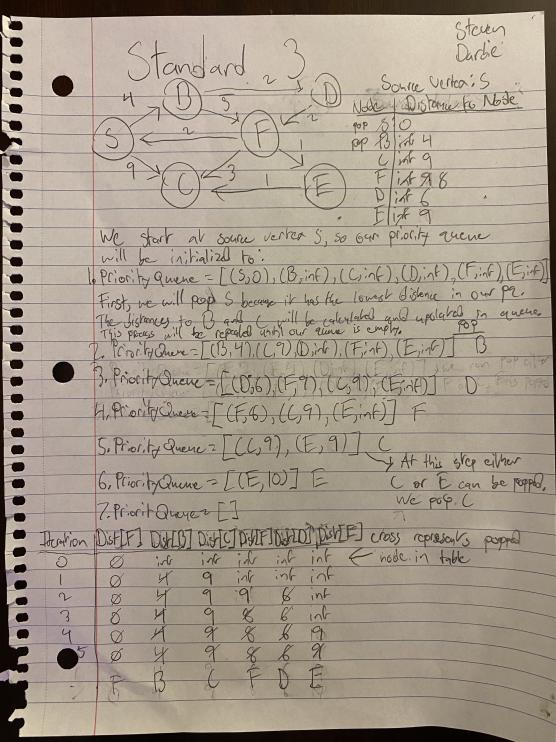 Steven
Dardie
Standard 3
Source vertex: S
4 B 2 D
5 2
S 2 F
9 3 1
C 1 E
Node | Distance to Node
pop S | 0
pop B | inf 4
C | inf 9
F | inf 9 8
D | inf 6
E | inf 9
We start at source vertex S, so our priority queue
will be initialized to:
1. Priority Queue = [(S,0), (B,inf), (C,inf), (D,inf), (F,inf), (E,inf)]
First, we will pop S because it has the lowest distance in our pq.
The distances to B and C will be calculated and updated in queue.
This process will be repeated until our queue is empty.
pop
2. Priority Queue = [(B,4), (C,9), (D,inf), (F,inf), (E,inf)] B
3. Priority Queue = [(D,6), (F,9), (C,9), (E,inf)] D
4. Priority Queue = [(F,8), (C,9), (E,inf)] F
5. Priority Queue = [(C,9), (E,9)] C
At this step either
C or E can be popped.
We pop C
6. Priority Queue = [(E,10)] E
7. Priorit Queue = []
Iteration Dist[F] Dist[B] Dist[C] Dist[F] Dist[D] Dist[E] cross represents popped
node in table
0 0 inf inf inf inf inf
1 0 4 9 inf inf inf
2 0 4 9 9 6 inf
3 0 4 9 8 6 inf
4 0 4 9 8 6 9
5 0 4 9 8 6 9
F B C F D E